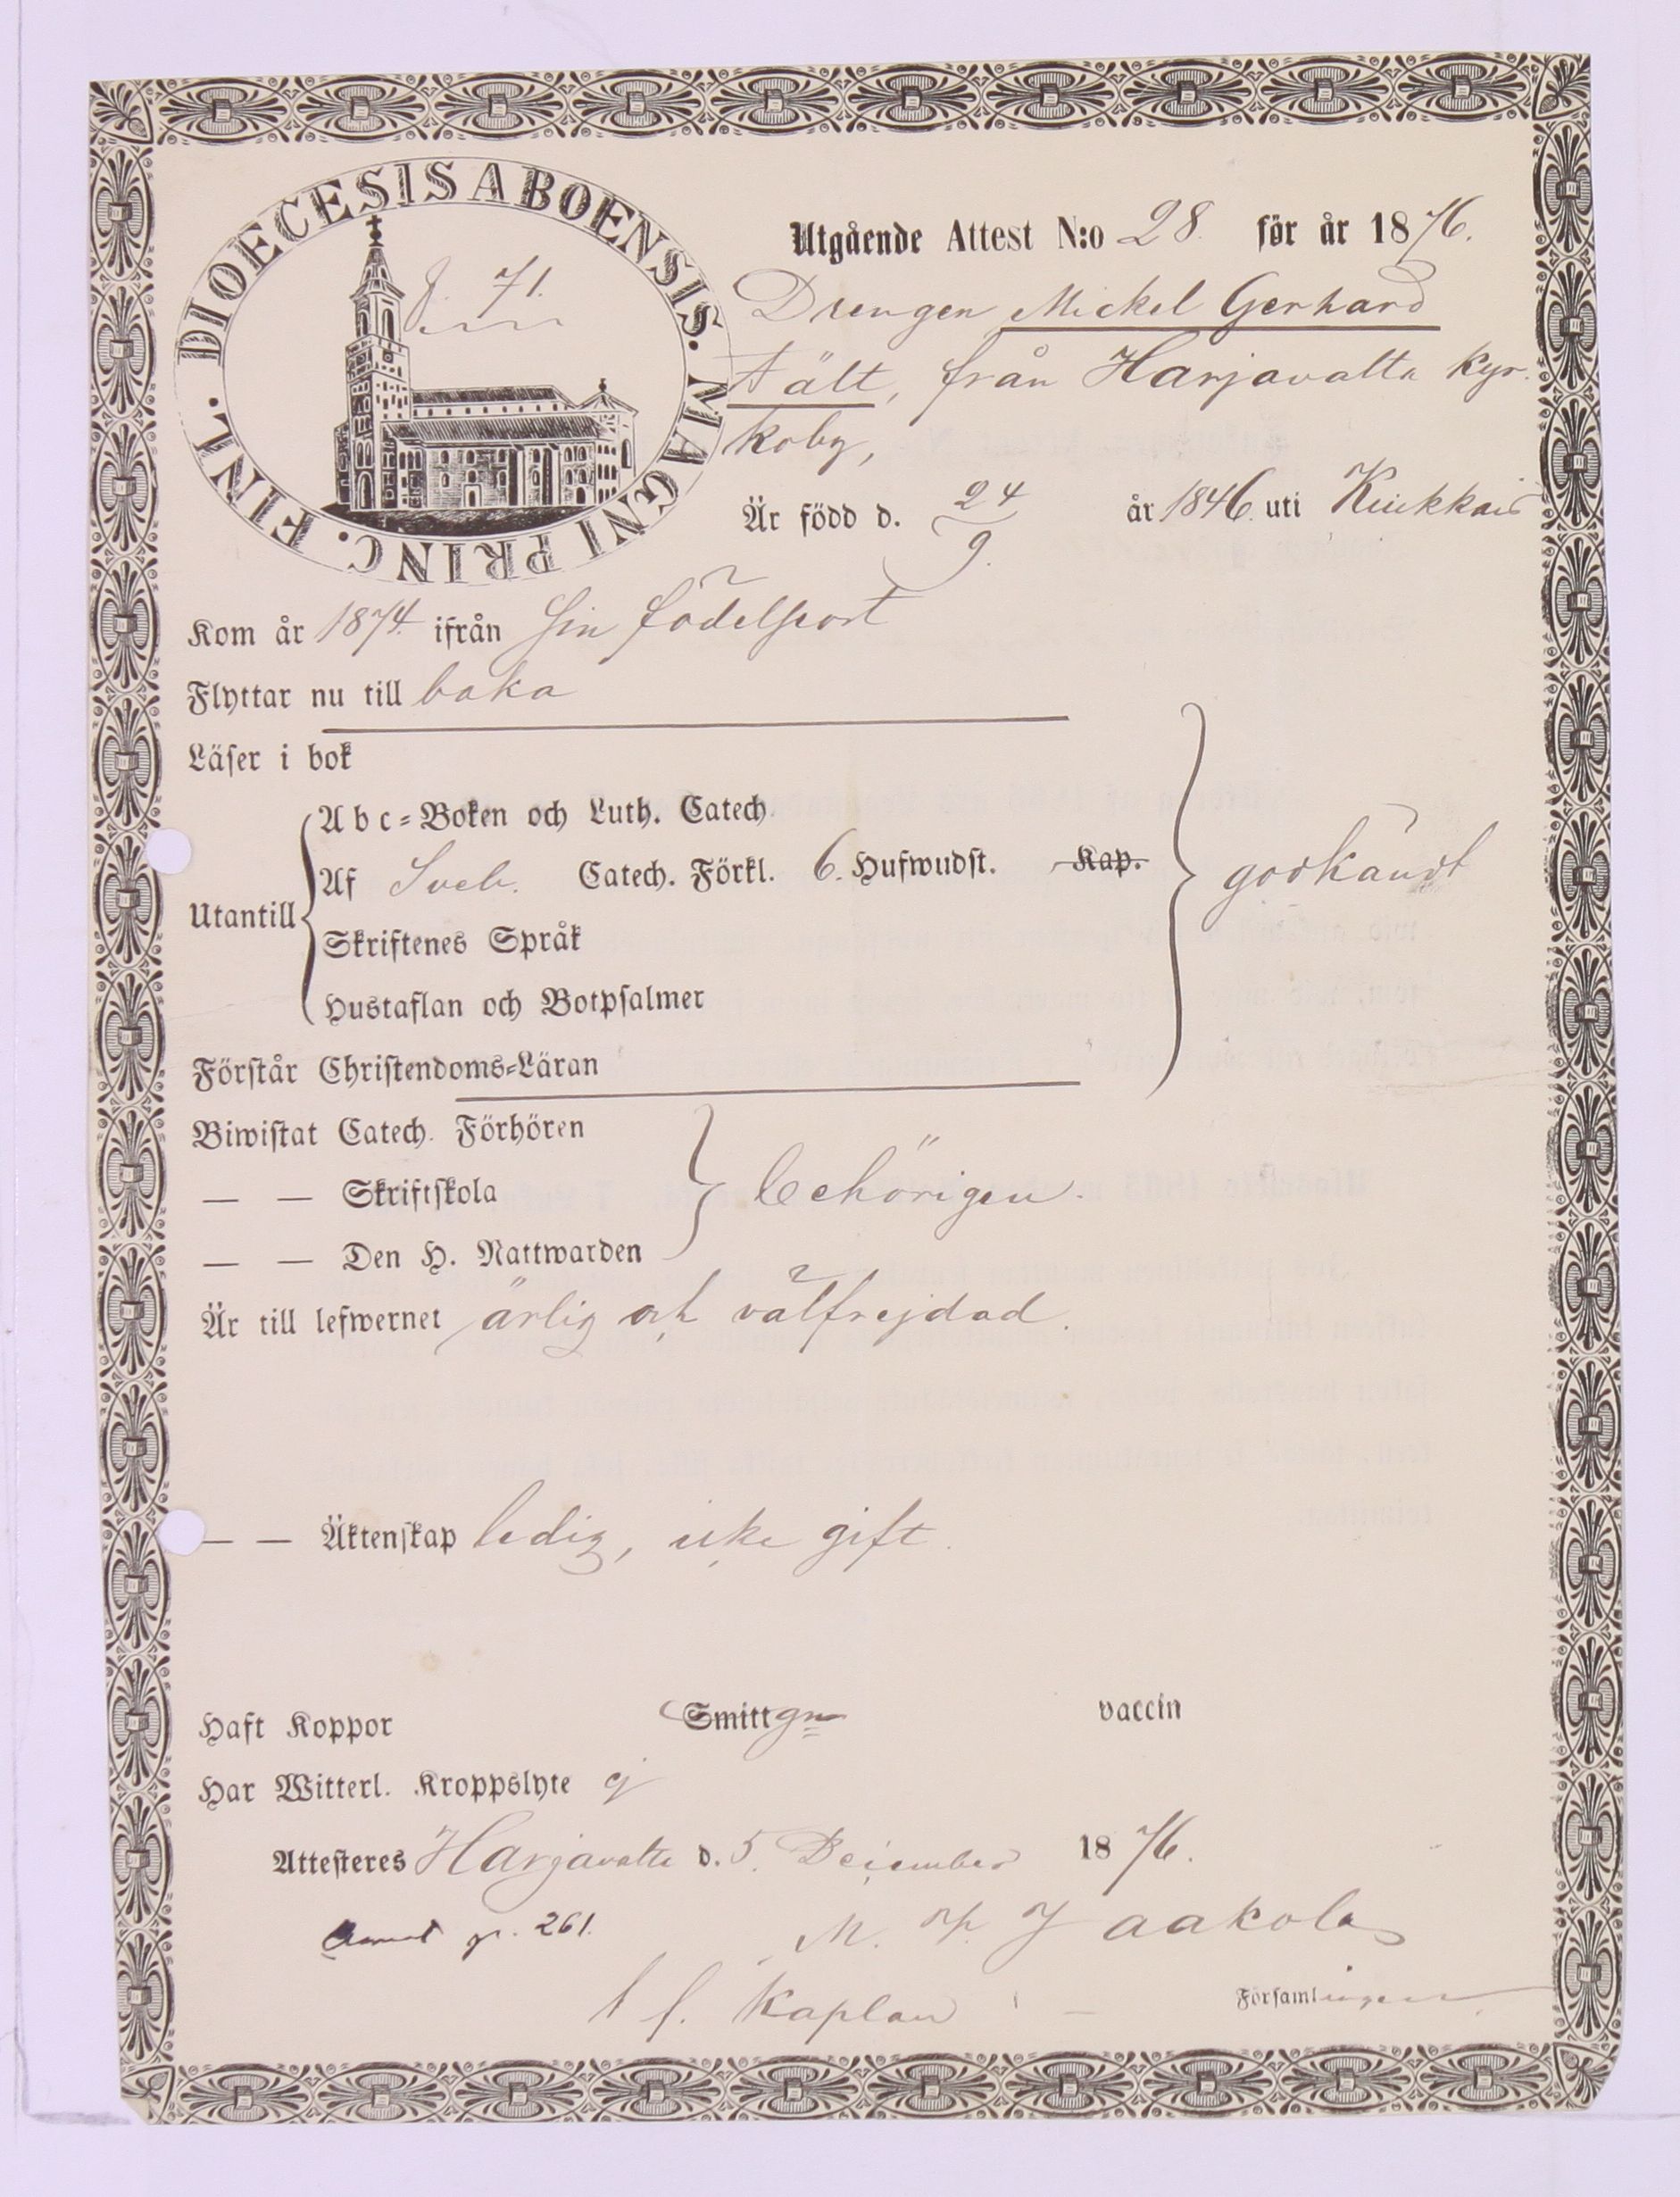 DIOECESIS ABOENSIS. MAGNI PRINC. FINL.
71.
Utgående Attest N:o 28. för år 1876.
Drengen Mickel Gerhard
Tält, från Harjavalta Kyr-
koby,
Är född d. 24/9. år 1846. uti Kiukkais
Kom år 1874. ifrån sin födelseort
Flyttar nu till baka
Läser i bok
Utantill
Abc-Boken och Luth. Catech.
Af Sveb. Catech. Förkl. 6. Hufwudst. Kap.
Skriftenes Språk
Hustaflan och Botpsalmer
godkändt
Förstår Christendoms-Läran
Biwistat Catech. Förhören
— — Skriftskola
behörigen.
— — Den H. Nattwarden
Är till lefwernet ärlig och välfrejdad.
— — Äktenskap ledig, icke gift.
Haft Koppor Smitt vaccin
Har Witterl. Kroppslyte ej
Attesteres Harjavalta d. 5. December 1876.
261. Jaakola
Kaplan Församlingen